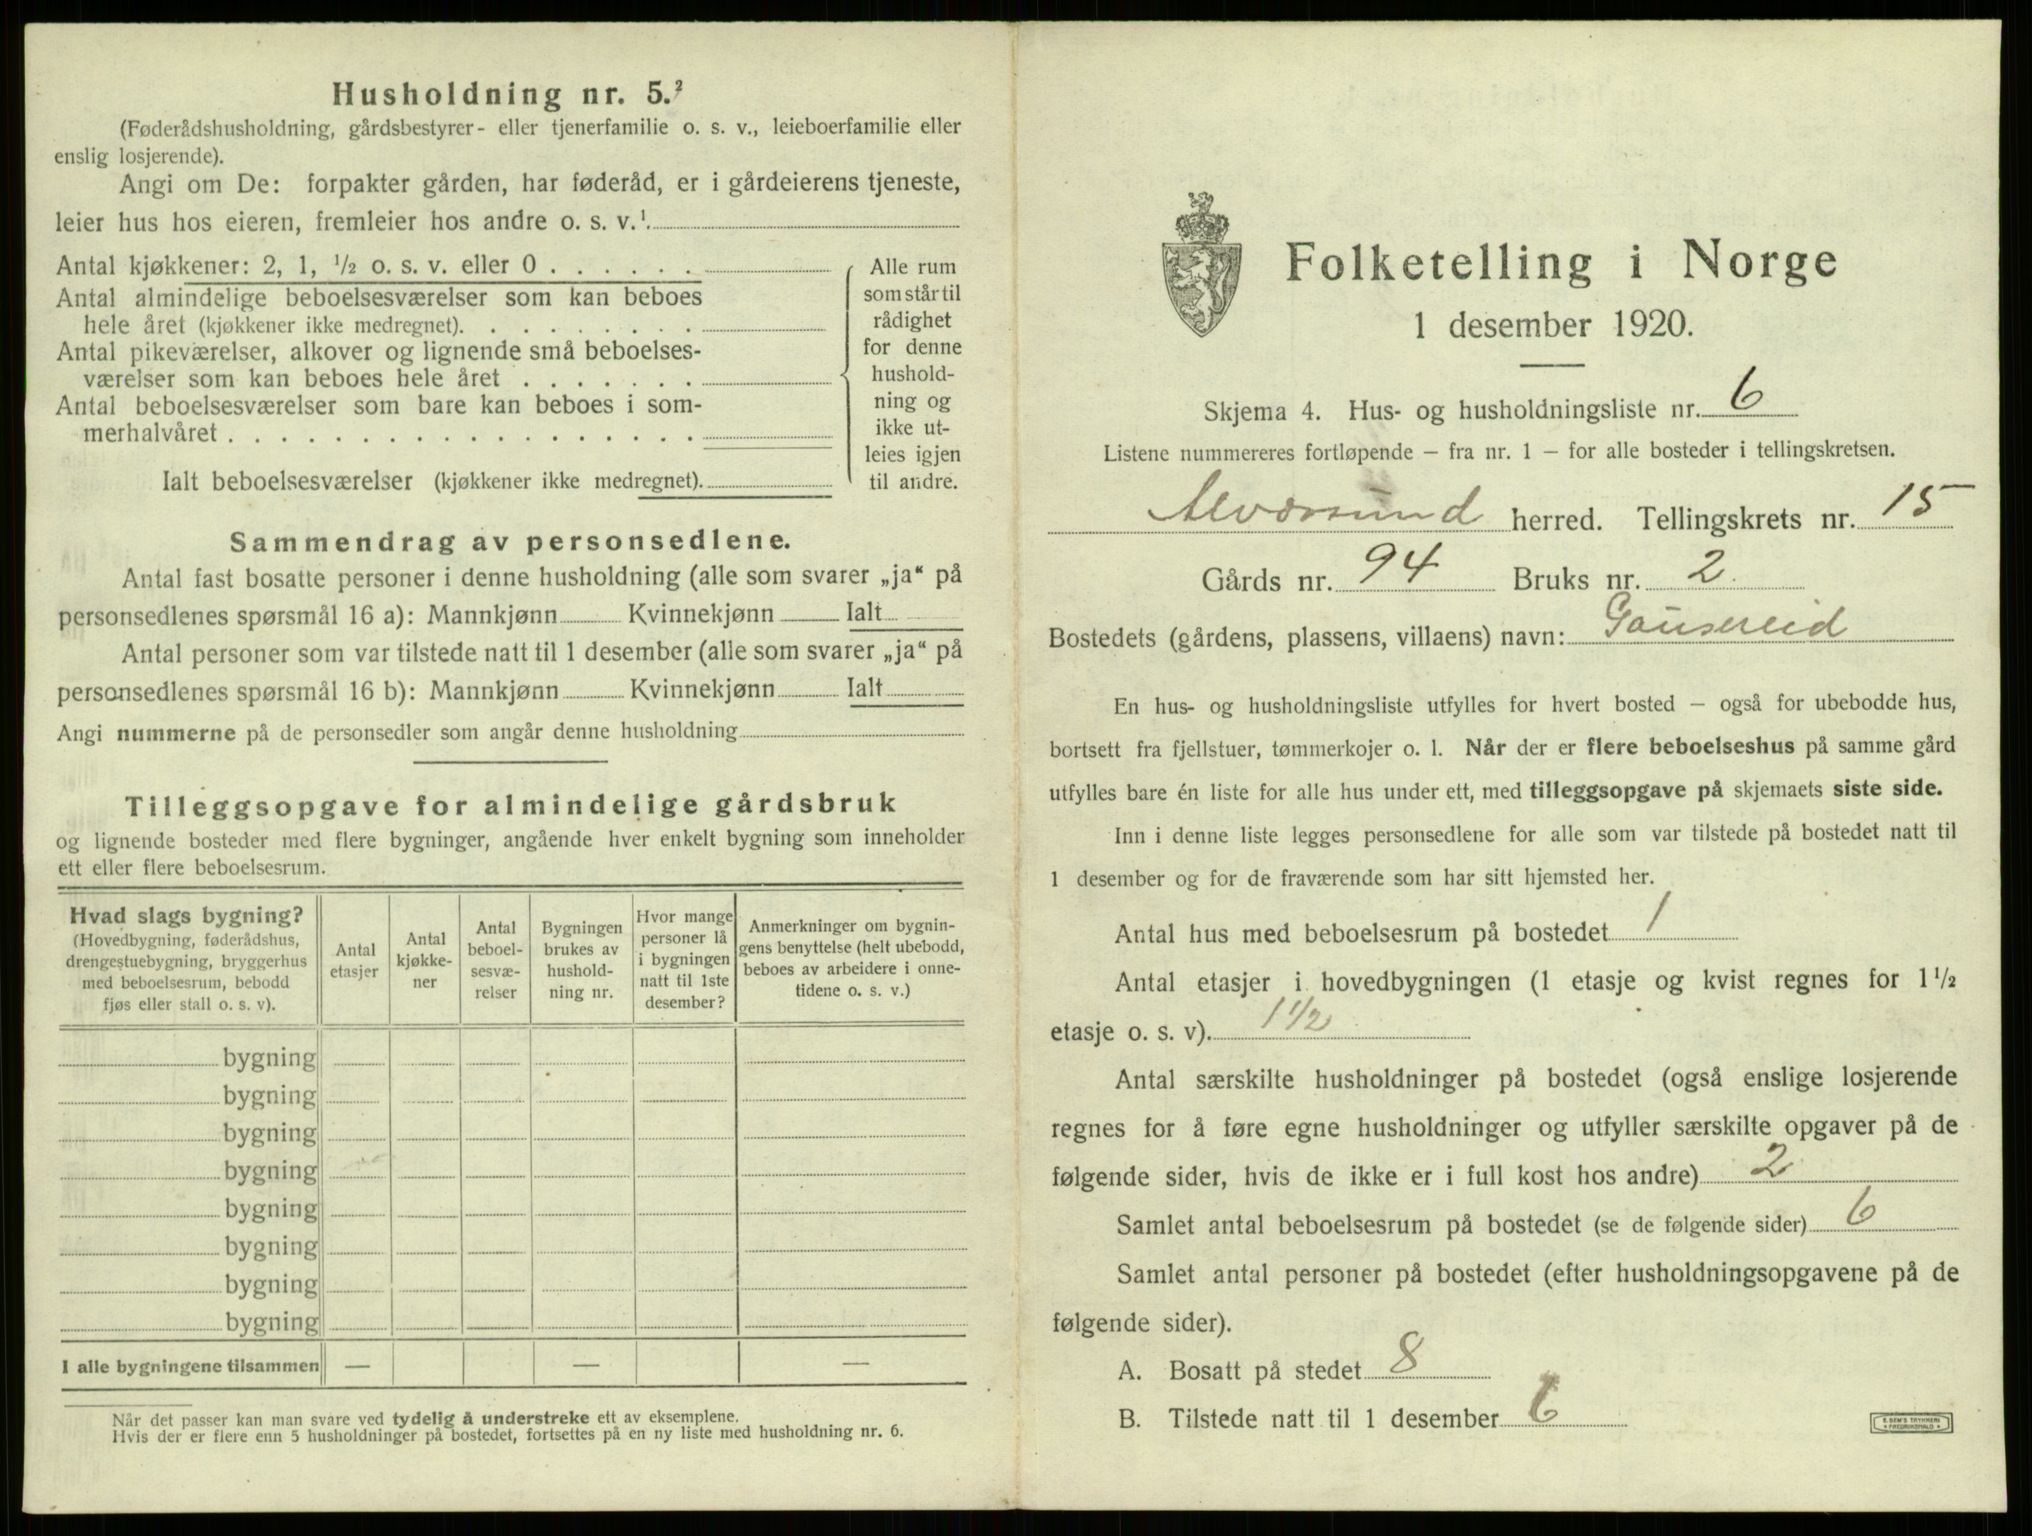 Husholdning nr. 5.²
(Føderådshusholdning, gårdsbestyrer- eller tjenerfamilie o. s. v., leieboerfamilie eller
enslig losjerende).
Angi om De: forpakter gården, har føderåd, er i gårdeierens tjeneste,
leier hus hos eieren, fremleier hos andre o. s. v.¹
Antal kjøkkener: 2, 1, ½ o. s. v. eller 0 . . . . . .
Antal almindelige beboelsesværelser som kan beboes
hele året (kjøkkener ikke medregnet). . . . . . . . .
Antal pikeværelser, alkover og lignende små beboelses-
værelser som kan beboes hele året . . . . . . .
Antal beboelsesværelser som bare kan beboes i som-
merhalvåret . . . . . . . . . . . . . . . . . .
Ialt beboelsesværelser (kjøkkener ikke medregnet).
Alle rum
som står til
rådighet
for denne
hushold-
ning og
ikke ut-
leies igjen
til andre.
Sammendrag av personsedlene.
Antal fast bosatte personer i denne husholdning (alle som svarer „ja“ på
personsedlenes spørsmål 16 a): Mannkjønn Kvinnekjønn Ialt
Antal personer som var tilstede natt til 1 desember (alle som svarer „ja“ på
personsedlenes spørsmål 16 b): Mannkjønn Kvinnekjønn Ialt
Angi nummerne på de personsedler som angår denne husholdning
Tilleggsopgave for almindelige gårdsbruk
og lignende bosteder med flere bygninger, angående hver enkelt bygning som inneholder
ett eller flere beboelsesrum.
Hvad slags bygning?
(Hovedbygning, føderådshus,
drengestuebygning, bryggerhus
med beboelsesrum, bebodd
fjøs eller stall o. s. v).
Antal
etasjer
Antal
kjøkke-
ner
Antal
beboel-
sesvæ-
relser
Bygningen
brukes av
hushold-
ning nr.
Hvor mange
personer lå
i bygningen
natt til 1ste
desember?
Anmerkninger om bygnin-
gens benyttelse (helt ubebodd,
beboes av arbeidere i onne-
tidene o. s. v.)
bygning
bygning
bygning
bygning
bygning
bygning
bygning
bygning
I alle bygningene tilsammen — — —
Når det passer kan man svare ved tydelig å understreke ett av eksemplene.
Hvis der er flere enn 5 husholdninger på bostedet, fortsettes på en ny liste med husholdning nr. 6.
Folketelling i Norge
1 desember 1920.
Skjema 4. Hus- og husholdningsliste nr. 6
Listene nummereres fortløpende – fra nr. 1 – for alle bosteder i tellingskretsen.
Alversund herred. Tellingskrets nr. 15
Gårds nr. 94 Bruks nr. 2
Bostedets (gårdens, plassens, villaens) navn: Gausereid
En hus- og husholdningsliste utfylles for hvert bosted – også for ubebodde hus,
bortsett fra fjellstuer, tømmerkojer o. l. Når der er flere beboelseshus på samme gård
utfylles bare én liste for alle hus under ett, med tilleggsopgave på skjemaets siste side.
Inn i denne liste legges personsedlene for alle som var tilstede på bostedet natt til
1 desember og for de fraværende som har sitt hjemsted her.
Antal hus med beboelsesrum på bostedet 1
Antal etasjer i hovedbygningen (1 etasje og kvist regnes for 1½
etasje o. s. v). 1½
Antal særskilte husholdninger på bostedet (også enslige losjerende
regnes for å føre egne husholdninger og utfyller særskilte opgaver på de
følgende sider, hvis de ikke er i full kost hos andre) 2
Samlet antal beboelsesrum på bostedet (se de følgende sider) 6
Samlet antal personer på bostedet (efter husholdningsopgavene på de
følgende sider).
A. Bosatt på stedet 8
B. Tilstede natt til 1 desember 6
E. SEM'S TRYKKERI
FREDRIKSHALD